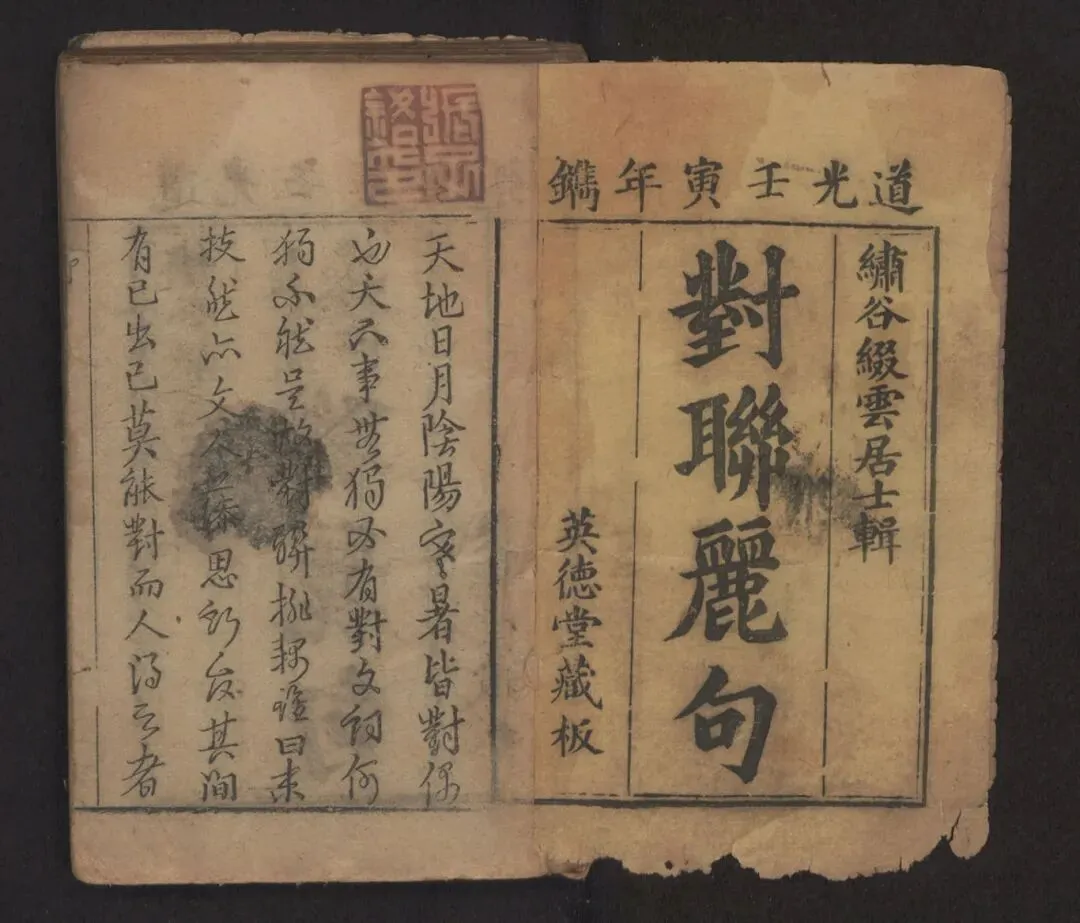 道光壬寅年鐫
繡谷綴雲居士輯
對聯麗句
英德堂藏板
天地日月陰陽寒暑皆對偶
也天下事無獨必有對文詞何
獨不然是故對聯排耦雖曰末
技然亦文人思所發其間
有已出已莫能對而人得之者